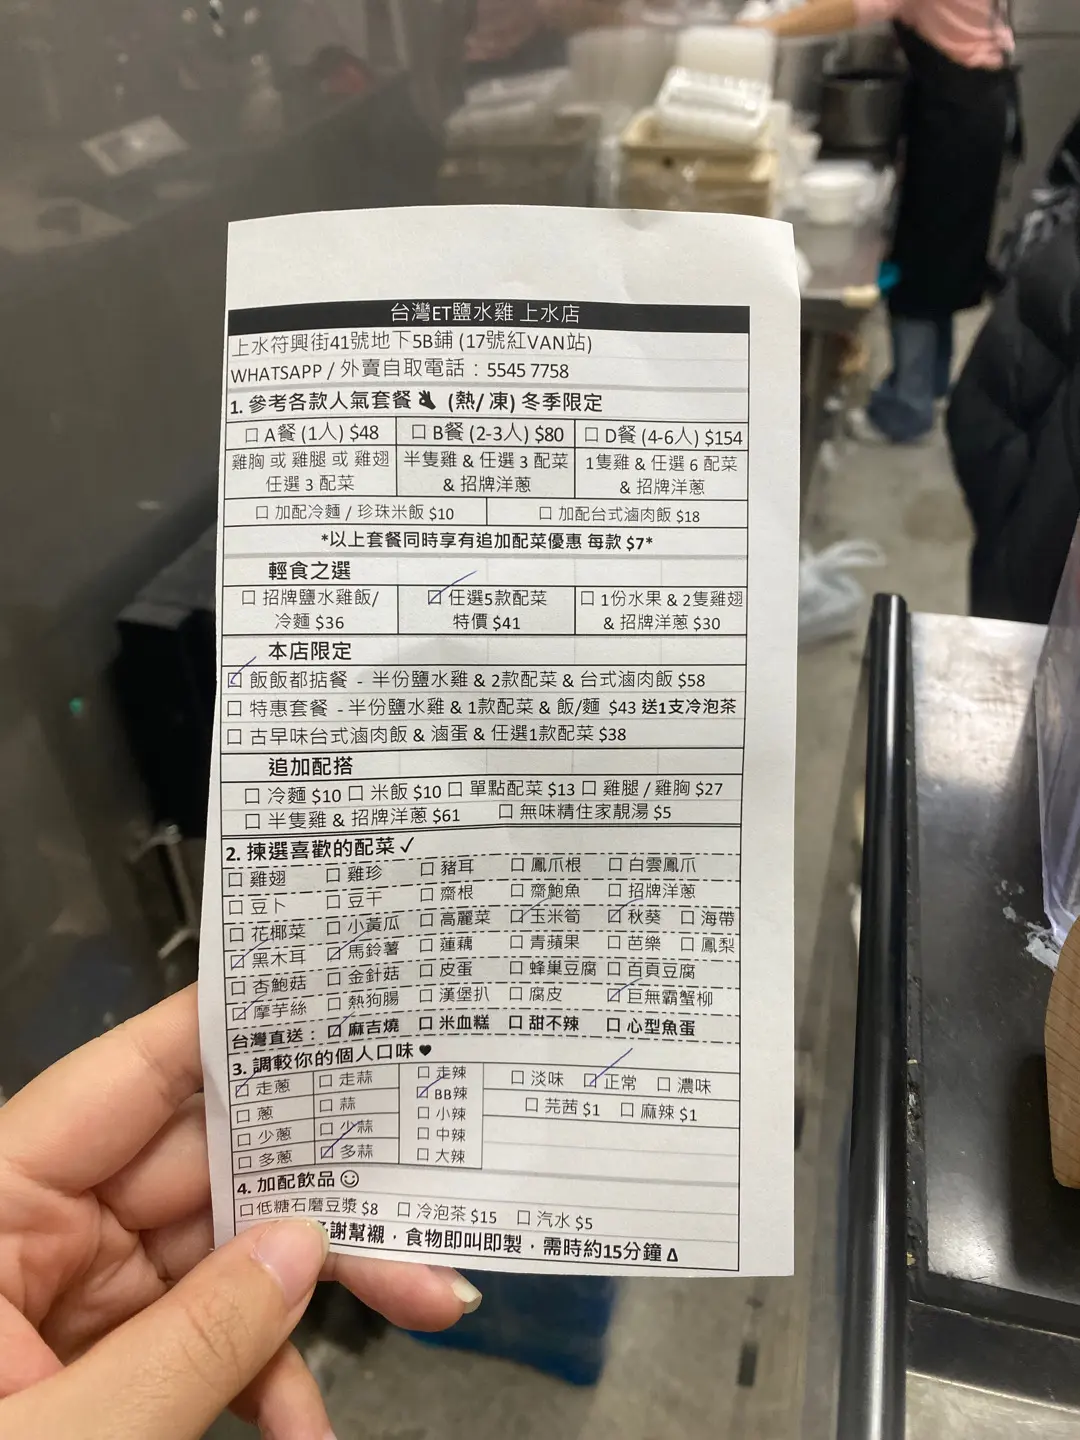 台灣ET鹽水雞 上水店
上水符興街41號地下5B鋪 (17號紅VAN站)
WHATSAPP / 外賣自取電話：5545 7758
1. 參考各款人氣套餐 (熱/ 凍) 冬季限定
☐ A餐 (1人) $48 ☐ B餐 (2-3人) $80 ☐ D餐 (4-6人) $154
雞胸 或 雞腿 或 雞翅 半隻雞 & 任選 3 配菜 1隻雞 & 任選 6 配菜
任選 3 配菜 & 招牌洋蔥 & 招牌洋蔥
☐ 加配冷麵 / 珍珠米飯 $10 ☐ 加配台式滷肉飯 $18
*以上套餐同時享有追加配菜優惠 每款 $7*
輕食之選
☐ 招牌鹽水雞飯/ ☑ 任選5款配菜 ☐ 1份水果 & 2隻雞翅
冷麵 $36 特價 $41 & 招牌洋蔥 $30
本店限定
☑ 飯飯都掂餐 - 半份鹽水雞 & 2款配菜 & 台式滷肉飯 $58
☐ 特惠套餐 - 半份鹽水雞 & 1款配菜 & 飯/麵 $43 送1支冷泡茶
☐ 古早味台式滷肉飯 & 滷蛋 & 任選1款配菜 $38
追加配搭
☐ 冷麵 $10 ☐ 米飯 $10 ☐ 單點配菜 $13 ☐ 雞腿 / 雞胸 $27
☐ 半隻雞 & 招牌洋蔥 $61 ☐ 無味精住家靚湯 $5
2. 揀選喜歡的配菜✓
☐ 雞翅 ☐ 雞珍 ☐ 豬耳 ☐ 鳳爪根 ☐ 白雲鳳爪
☐ 豆卜 ☐ 豆干 ☐ 齋根 ☐ 齋鮑魚 ☐ 招牌洋蔥
☐ 花椰菜 ☐ 小黃瓜 ☐ 高麗菜 ☑ 玉米筍 ☑ 秋葵 ☐ 海帶
☑ 黑木耳 ☑ 馬鈴薯 ☐ 蓮藕 ☐ 青蘋果 ☐ 芭樂 ☐ 鳳梨
☐ 杏鮑菇 ☐ 金針菇 ☐ 皮蛋 ☐ 蜂巢豆腐 ☐ 百頁豆腐
☑ 蒟芋絲 ☐ 熱狗腸 ☐ 漢堡扒 ☐ 腐皮 ☑ 巨無霸蟹柳
台灣直送： ☑ 麻吉燒 ☐ 米血糕 ☐ 甜不辣 ☐ 心型魚蛋
3. 調較你的個人口味♥
☑ 走蔥 ☐ 走蒜 ☐ 走辣 ☐ 淡味 ☑ 正常 ☐ 濃味
☐ 蔥 ☐ 蒜 ☑ BB辣 ☐ 芫茜 $1 ☐ 麻辣 $1
☐ 少蔥 ☐ 少蒜 ☐ 小辣
☐ 多蔥 ☑ 多蒜 ☐ 中辣
☐ 大辣
4. 加配飲品☺
☐ 低糖石磨豆漿 $8 ☐ 冷泡茶 $15 ☐ 汽水 $5
謝幫襯，食物即叫即製，需時約15分鐘Δ